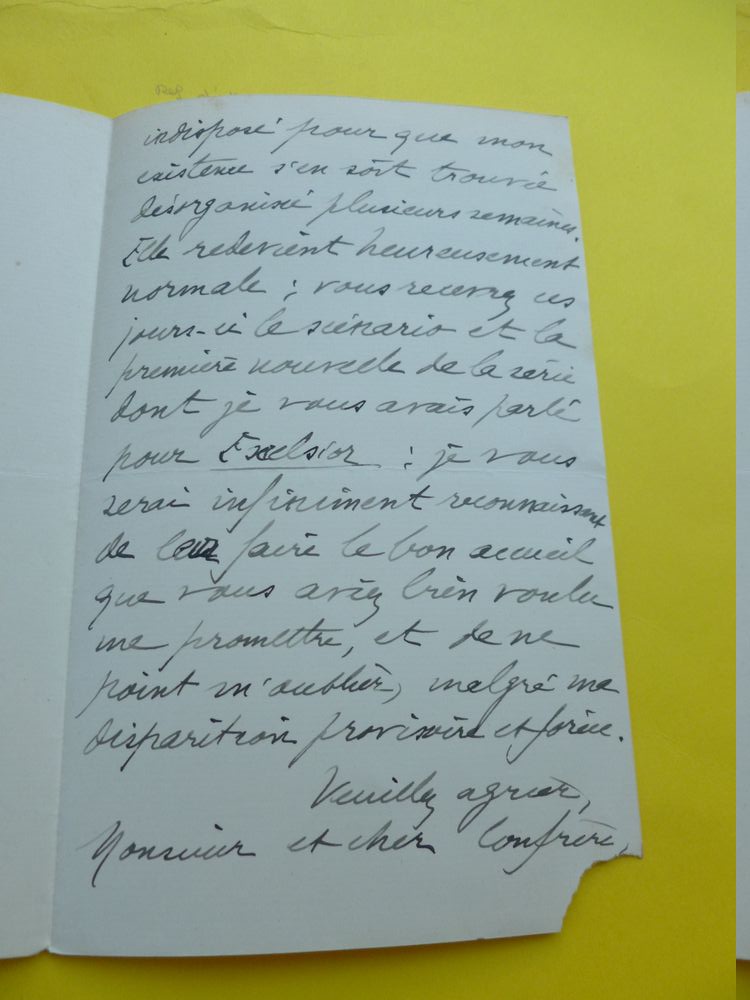 indisposé pour que mon
existence s'en soit trouvée
désorganisée plusieurs semaines.
Elle redevient heureusement
normale ; vous recevrez ces
jours-ci le scénario et la
première nouvelle de la série
dont je vous avais parlé
pour Excelsior : je vous
serai infiniment reconnaissant
de leur faire le bon accueil
que vous aviez bien voulu
me promettre, et de ne
point m'oublier, malgré ma
disparition provisoire et forcée.
Veuillez agréer,
Monsieur et cher Confrère,